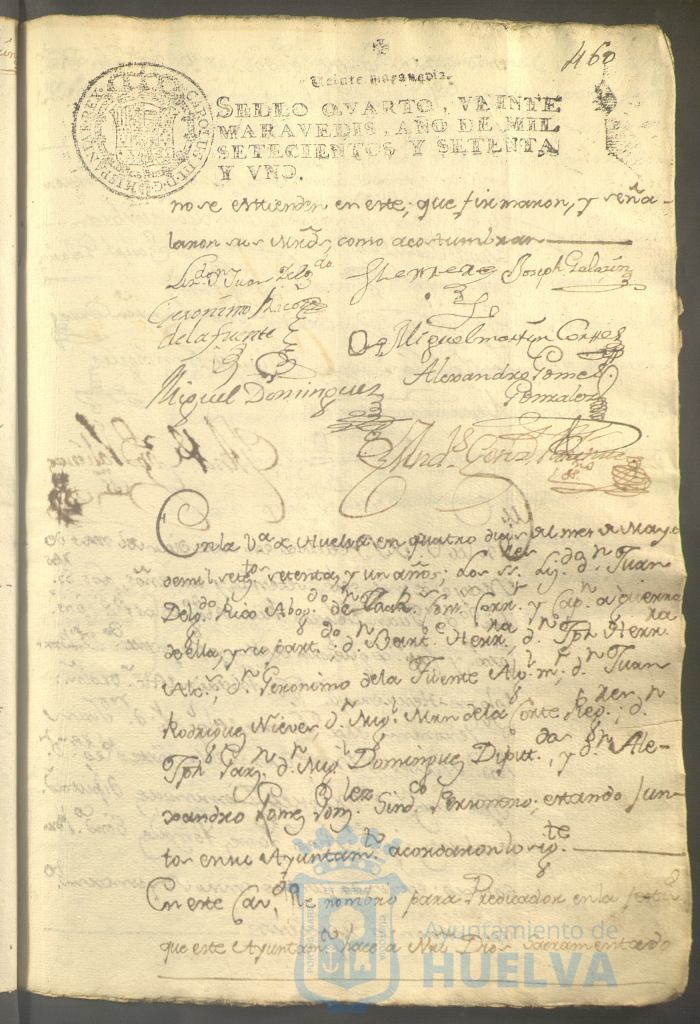 460
Veinte maravedis.
SELLO QVARTO, VEINTE
MARAVEDIS, AÑO DE MIL
SETECIENTOS Y SETENTA
Y VNO.
CAROLUS III D G HISPANIAR REX
no se estienden en este; que firmaron, y seña-
laron sus Mrds, como acostumbran
Liz.do Dn Juan Delg.do
Joseph Galarin
Geronimo Rico
de la fuente
Miguel martyn Cortes
Alexandro Gomez
Gonzalez
Miguel Dominguez
En la V.a de Huelva en quatro dias del mes de Mayo
de mil set.tos setenta y un años; Los SS. Liz.do dn Juan
Delg.do Rico Abog.do de los R.s Con. Corr.r y Cap.n a guerra
de ella, y su part.do; dn Bart.e Herr.ra, dn Jph Herr.ra
Alc.; dn Geronimo de la Fuente Alg.l m.r; dn Juan
Rodriguez Nieves, dn Mig.l Mrn de la Corte Reg.res; dn
Jph Garz.n dn Mig.l Dominguez Diputt.dos, y dn Ale-
xandro Gomez Gonz.lez Sind.co Personero; estando jun-
tos en su Ayuntam.to acordaron lo sig.te
En este Cav.do se nombró para Predicador en la
que este Ayuntam.to hace a Ntr̃o Dios sacramentado
Ayuntamiento de
HUELVA